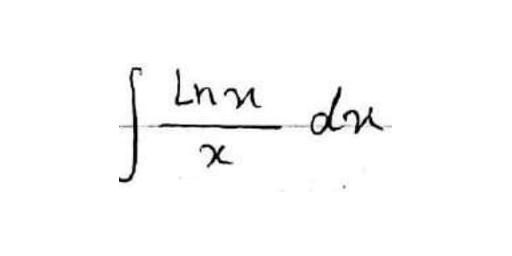 ∫ Lnx/x dx